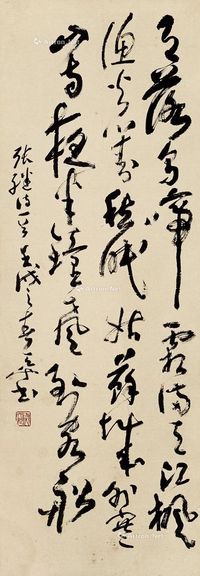 月落烏啼霜滿天江楓
漁火對愁眠姑蘇城外寒
山寺夜半鐘聲到客船
張繼詩一首壬戌之春書